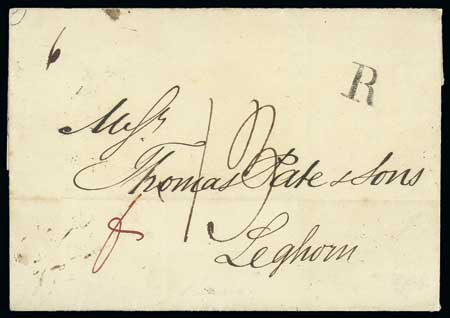 6
R
Messrs
Thomas Pate & Sons
13
Leghorn